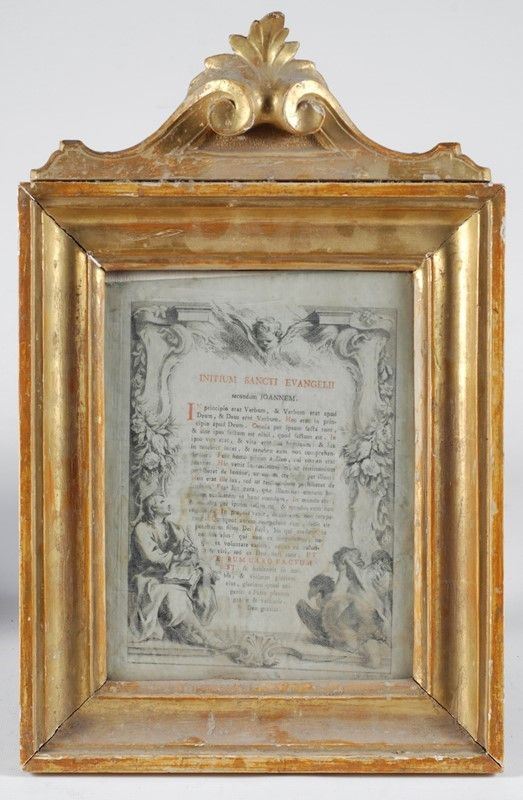 INITIUM SANCTI EVANGELII
secundum IOANNEM.
IN principio erat Verbum, & Verbum erat apud
Deum, & Deus erat Verbum. Hoc erat in prin-
cipio apud Deum. Omnia per ipsum facta sunt,
& sine ipso factum est nihil, quod factum est. In
ipso vita erat, & vita erat lux hominum; & lux
in tenebris lucet, & tenebræ eam non comprehen-
derunt. Fuit homo missus a Deo, cui nomen erat
Joannes. Hic venit in testimonium, ut testimonium
perhiberet de lumine, ut omnes crederent per illum.
Non erat ille lux, sed ut testimonium perhiberet de
lumine. Erat lux vera, quæ illuminat omnem ho-
minem venientem in hunc mundum. In mundo erat,
& mundus per ipsum factus est, & mundus eum non
cognovit. In propria venit, & sui eum non recepe-
runt. Quotquot autem receperunt eum, dedit eis
potestatem filios Dei fieri, his qui
qui non ex
ex voluntate carnis, neque ex volun-
viri, sed ex Deo nati sunt. ET
VERBUM CARO FACTUM
EST, & habitavit in no-
bis, & vidimus gloriam
ejus, gloriam quasi uni-
geniti a Patre plenum
gratiæ & veritatis.
Deo gratias.